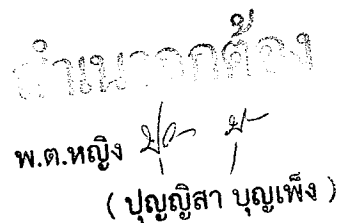 สำเนาถูกต้อง
พ.ต.หญิง
( ปุญญิสา บุญเพ็ง )